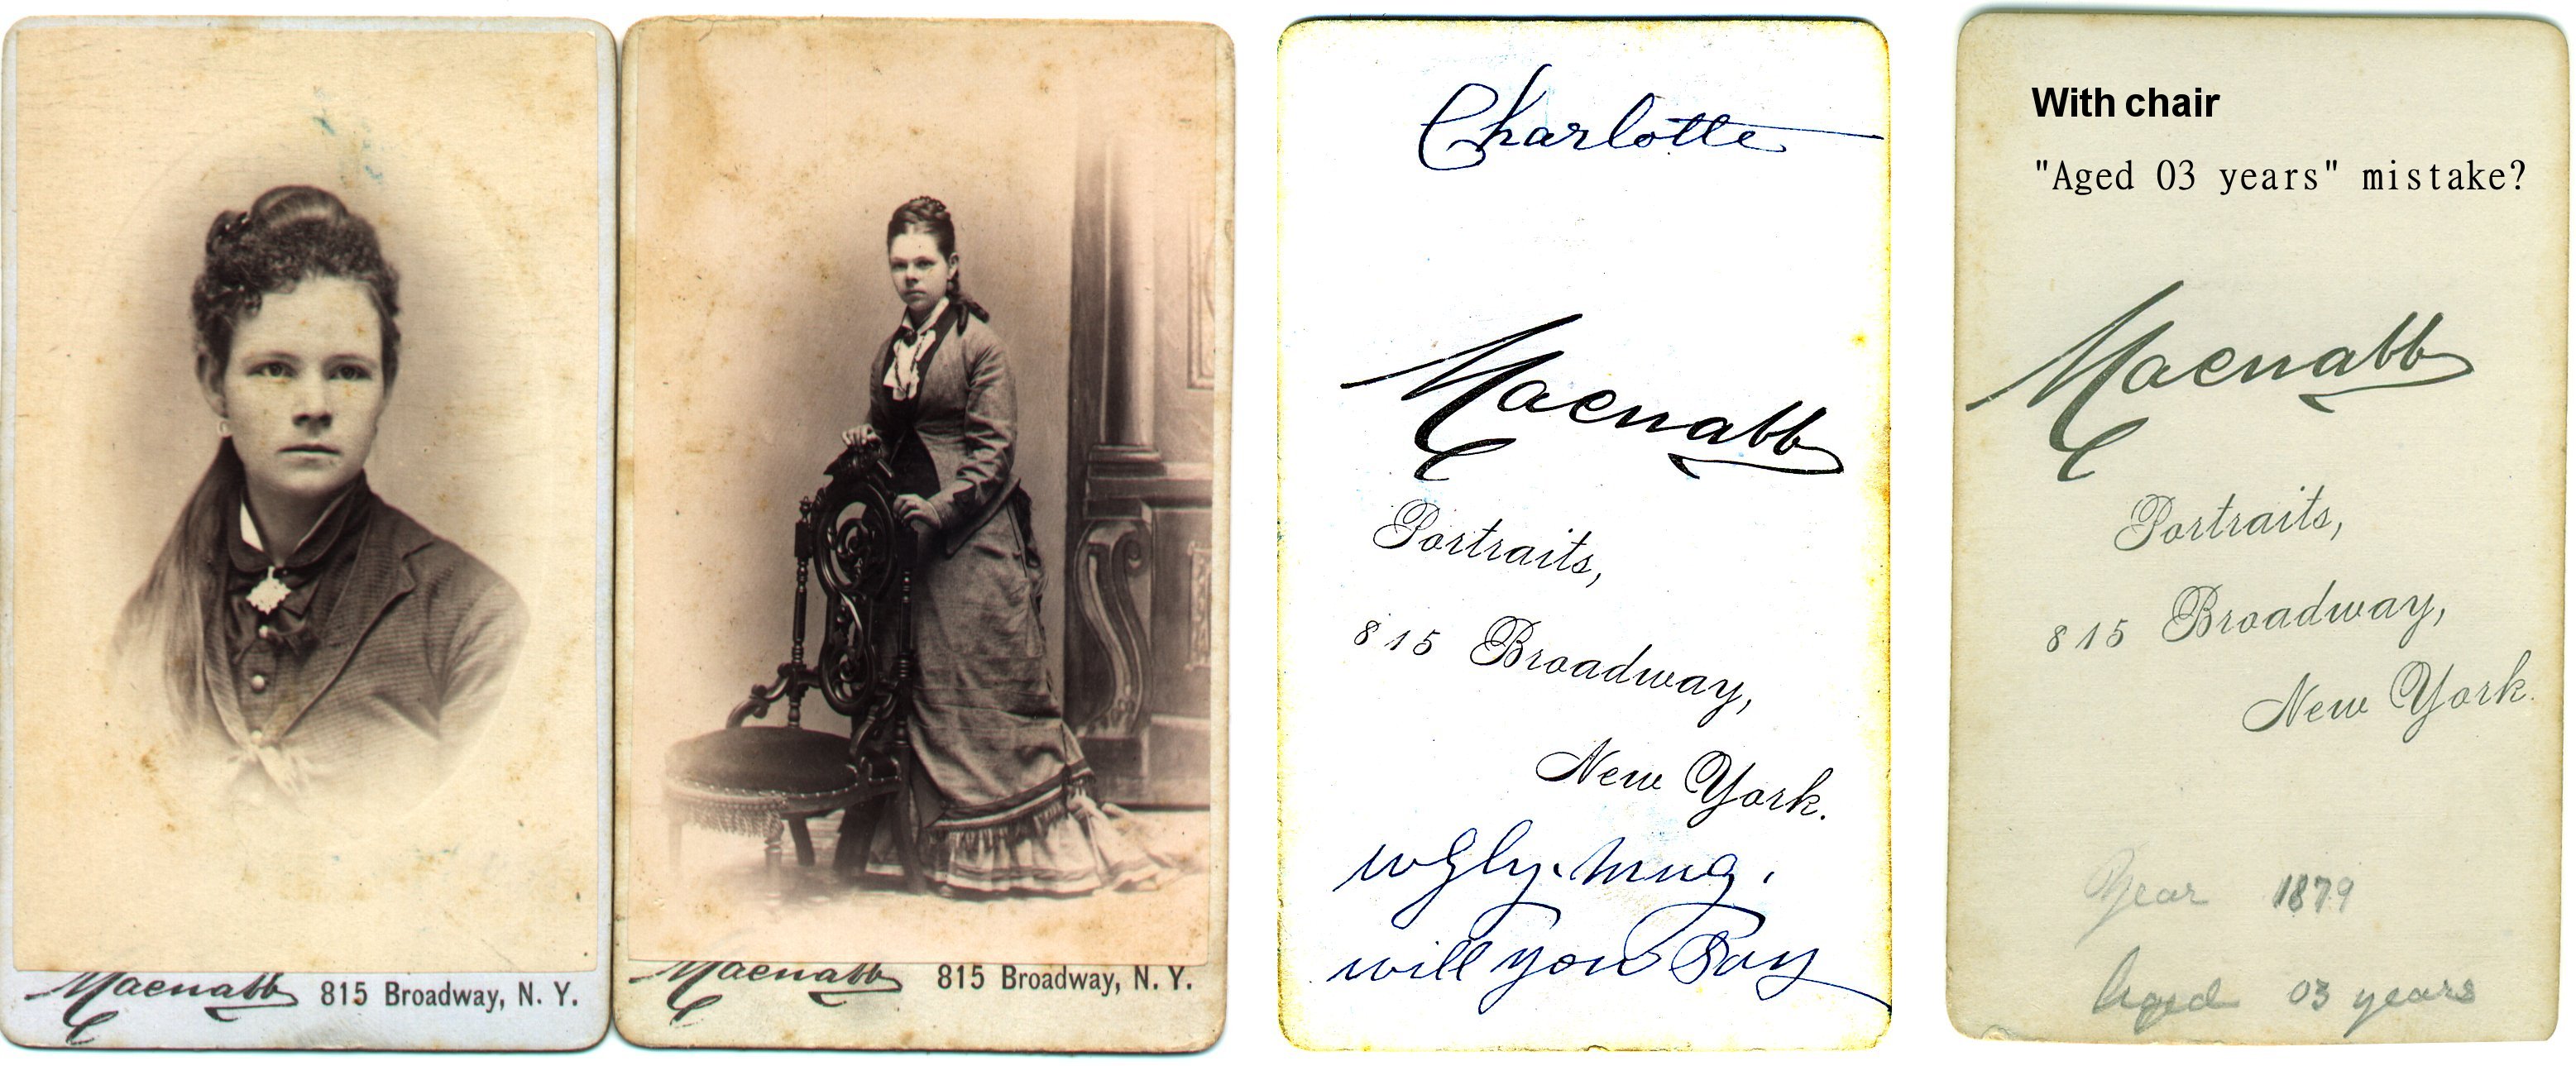 Macnabb 815 Broadway, N. Y.
Macnabb 815 Broadway, N. Y.
Charlotte
Macnabb
Portraits,
815 Broadway,
New York.
ugly mug.
will you Say
With chair
"Aged 03 years" mistake?
Macnabb
Portraits,
815 Broadway,
New York.
Year 1879
Aged 03 years